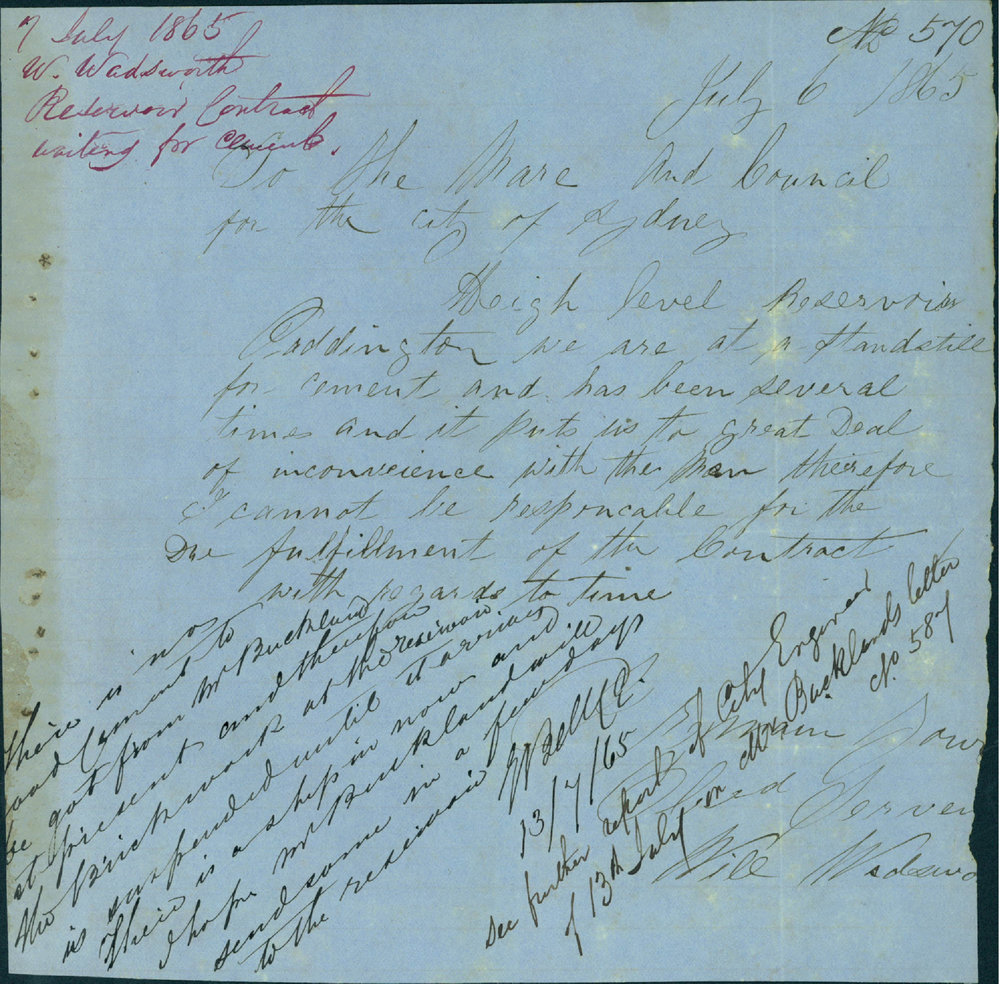 7 July 1865
W. Wadsworth
Reservoir Contract
waiting for cement.
No 570
July 6 1865
To the Mare and Council
for the city of Sydney
Heigh level Reservoir
Paddington we are at a standstill
for cement and has been several
times and it puts us to great Deal
of inconveience with the Men therefore
I cannot be responcable for the
Due fulfillment of the Contract
with regards to time
I Remain Your
Obed Serven
Will Wadswo
There is no
good Cement to
be got from Mr Buckland
at present and therefore
the brickwork at the reservoir
is suspended until it arrives
There is a ship in now and
I hope Mr Buckland will
send some in a few days
to the reservoir
E Bell C.E.
13/7/65
See further report of City Engineer
of 13th July on Mr Bucklands letter
No 587